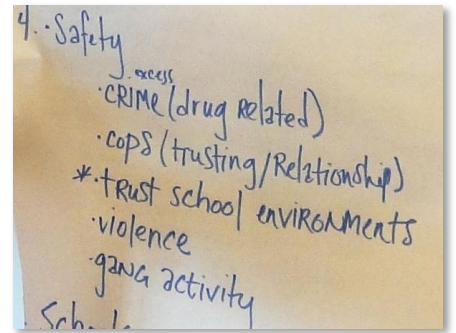 4. · Safety
· excess
· CRIME (drug Related)
· cops (trusting/Relationship)
* · tRust school enviRonments
· violence
· gaNG activity
· Schools